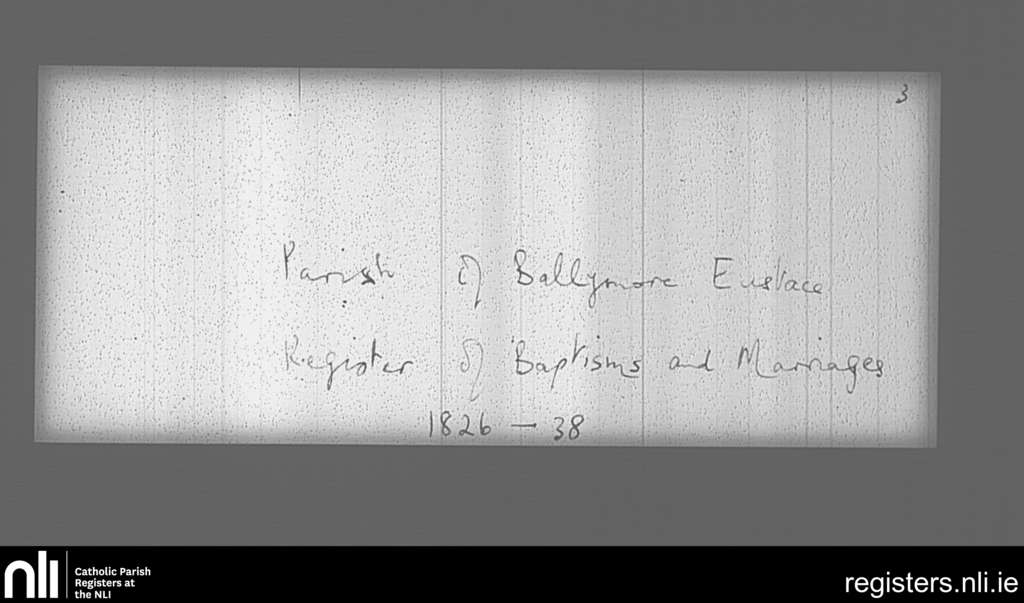 3
Parish of Ballymore Eustace
Register of Baptisms and Marriages
1826 — 38
nli
Catholic Parish
Registers at
the NLI
registers.nli.ie